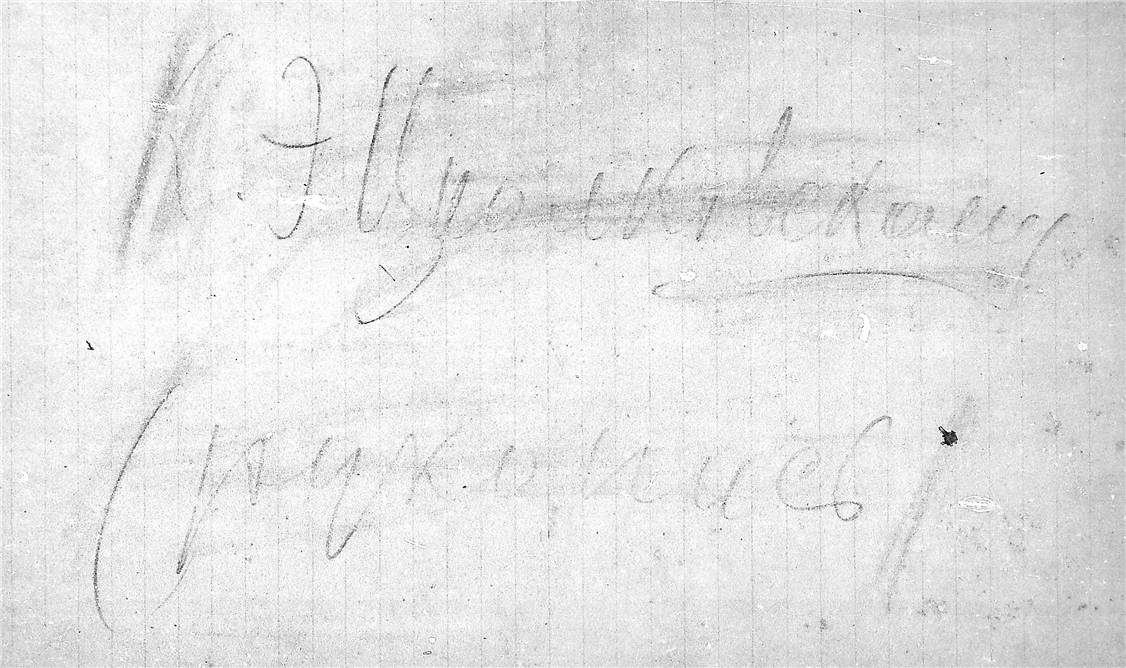 К. Э Циолковскому
(рукопись)